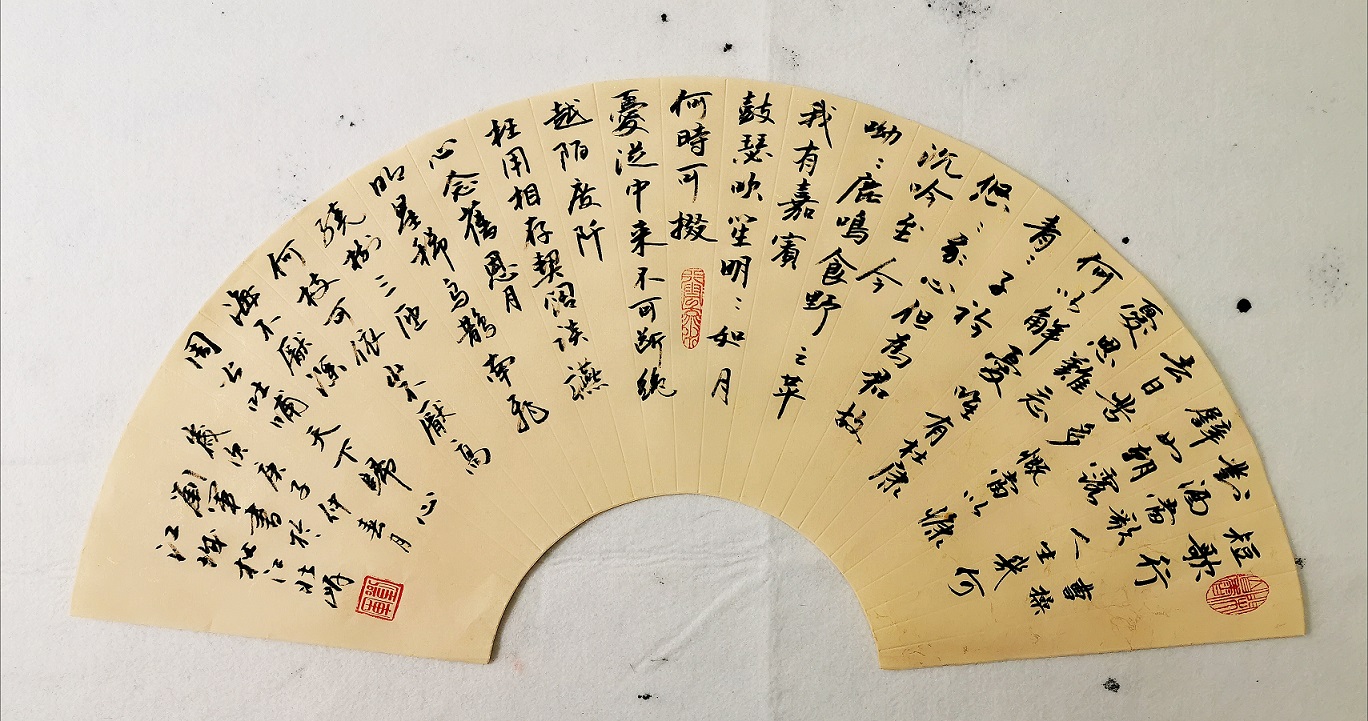 短歌行曹操
對酒當歌人生幾何
譬如朝露
去日苦多慨當以慷
憂思難忘
何以解憂唯有杜康
青〻子衿
悠〻我心但為君故
沉吟至今
呦〻鹿鳴食野之苹
我有嘉賓
鼓瑟吹笙明〻如月
何時可掇
憂從中來不可斷絕
越陌度阡
枉用相存契闊談讌
心念舊恩月
明星稀烏鵲南飛
繞樹三匝
何枝可依山不厭高
海不厭深
周公吐哺天下歸心
歲次庚子仲春月
劉軍書於
江城